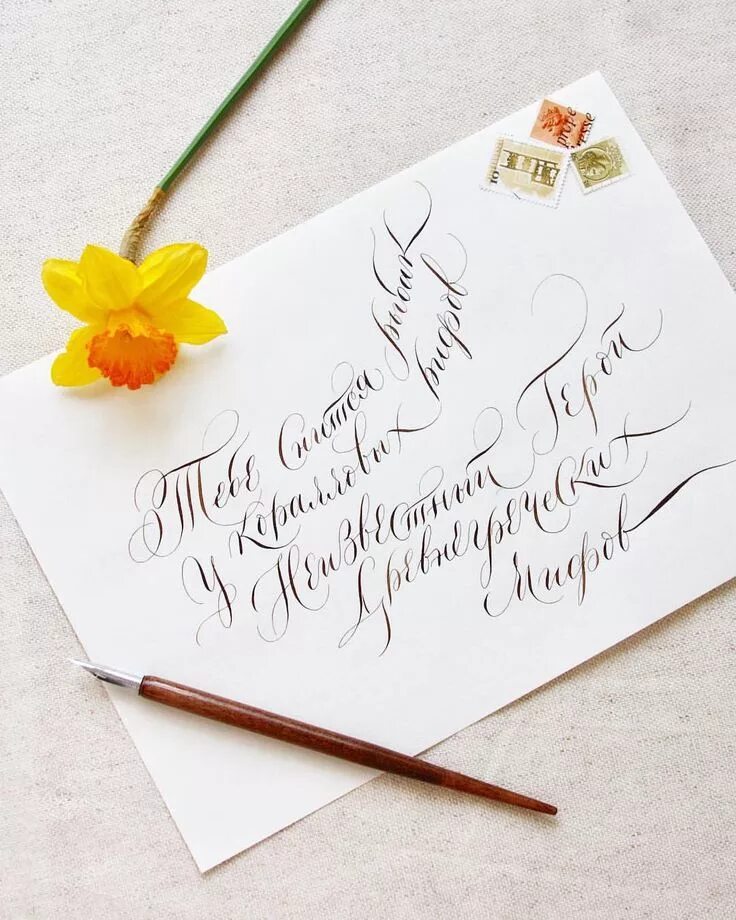 Тебе Снится рыбак
У коралловых рифов
Неизвестный Герой
Древнегреческих
Мифов
10
prope
esse